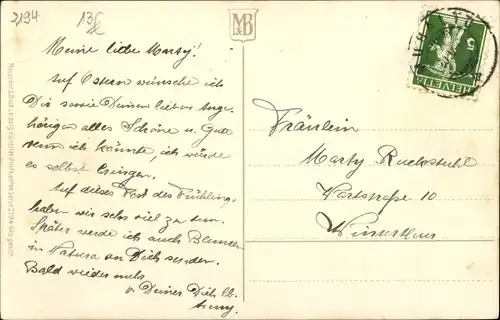 2194
13
MB
Meine liebe Marty!
Auf Ostern wünsche ich
Dir sowie Deinen lieben Ange-
hörigen alles Schöne u. Gute
wenn ich könnte, ich würde
es selbst bringen.
Auf dieses Fest des Frühlings
haben wir sehr viel zu tun.
Später werde ich auch Blumen
in Natura an Dich senden.
Bald wieder mehr
v. Deiner Dich lb.
HELVETIA
5
Fräulein
Marty Ruckstuhl
Wartstraße 10
Winterthur